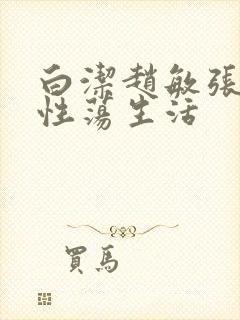 白潔趙敏張
性蕩生活
買馬